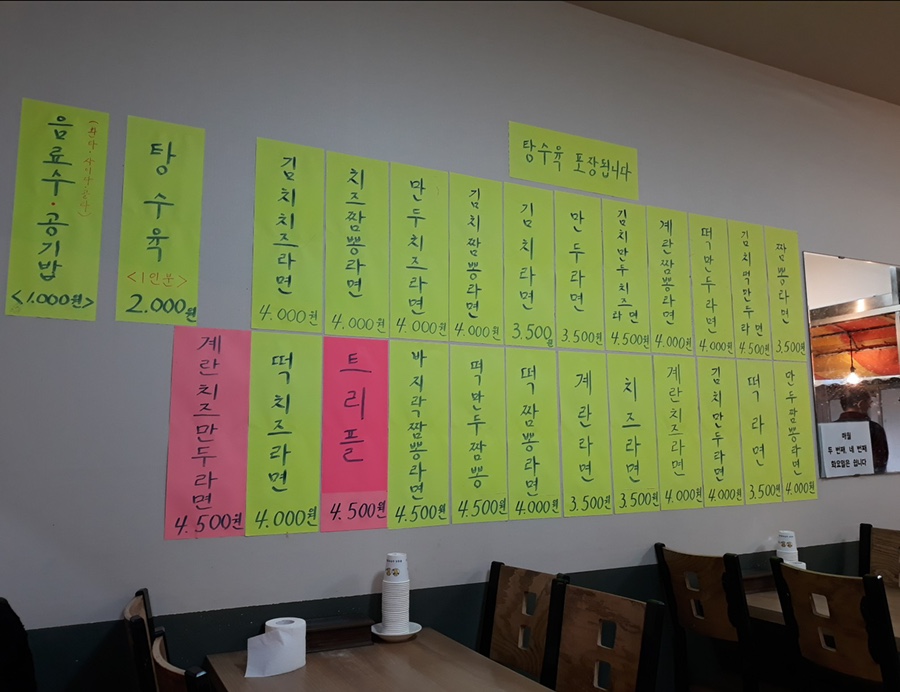 음료수·공기밥
<1.000원>
탕수육
<1인분>
2.000원
탕수육 포장됩니다
김치치즈라면
4.000원
치즈짬뽕라면
4.000원
만두치즈라면
4.000원
김치짬뽕라면
4.000원
김치라면
3.500원
만두라면
3.500원
김치만두치즈라면
4.500원
계란짬뽕라면
4.000원
떡만두라면
4.000원
김치떡만두라면
4.500원
짬뽕라면
3.500원
계란치즈만두라면
4.500원
떡치즈라면
4.000원
트리플
4.500원
바지락짬뽕라면
4.500원
떡만두짬뽕
4.500원
떡짬뽕라면
4.000원
계란라면
3.500원
치즈라면
3.500원
계란치즈라면
4.000원
김치만두라면
4.000원
떡라면
3.500원
만두짬뽕라면
4.000원
매월
두 번째, 네 번째
화요일은 쉽니다